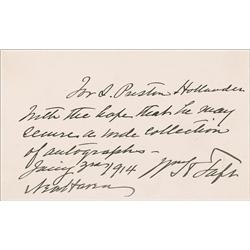 For I. Preston Hollander
With the hope that he may
secure a wide collection
of autographs -
Jany 3rd 1914 Wm H Taft
New Haven